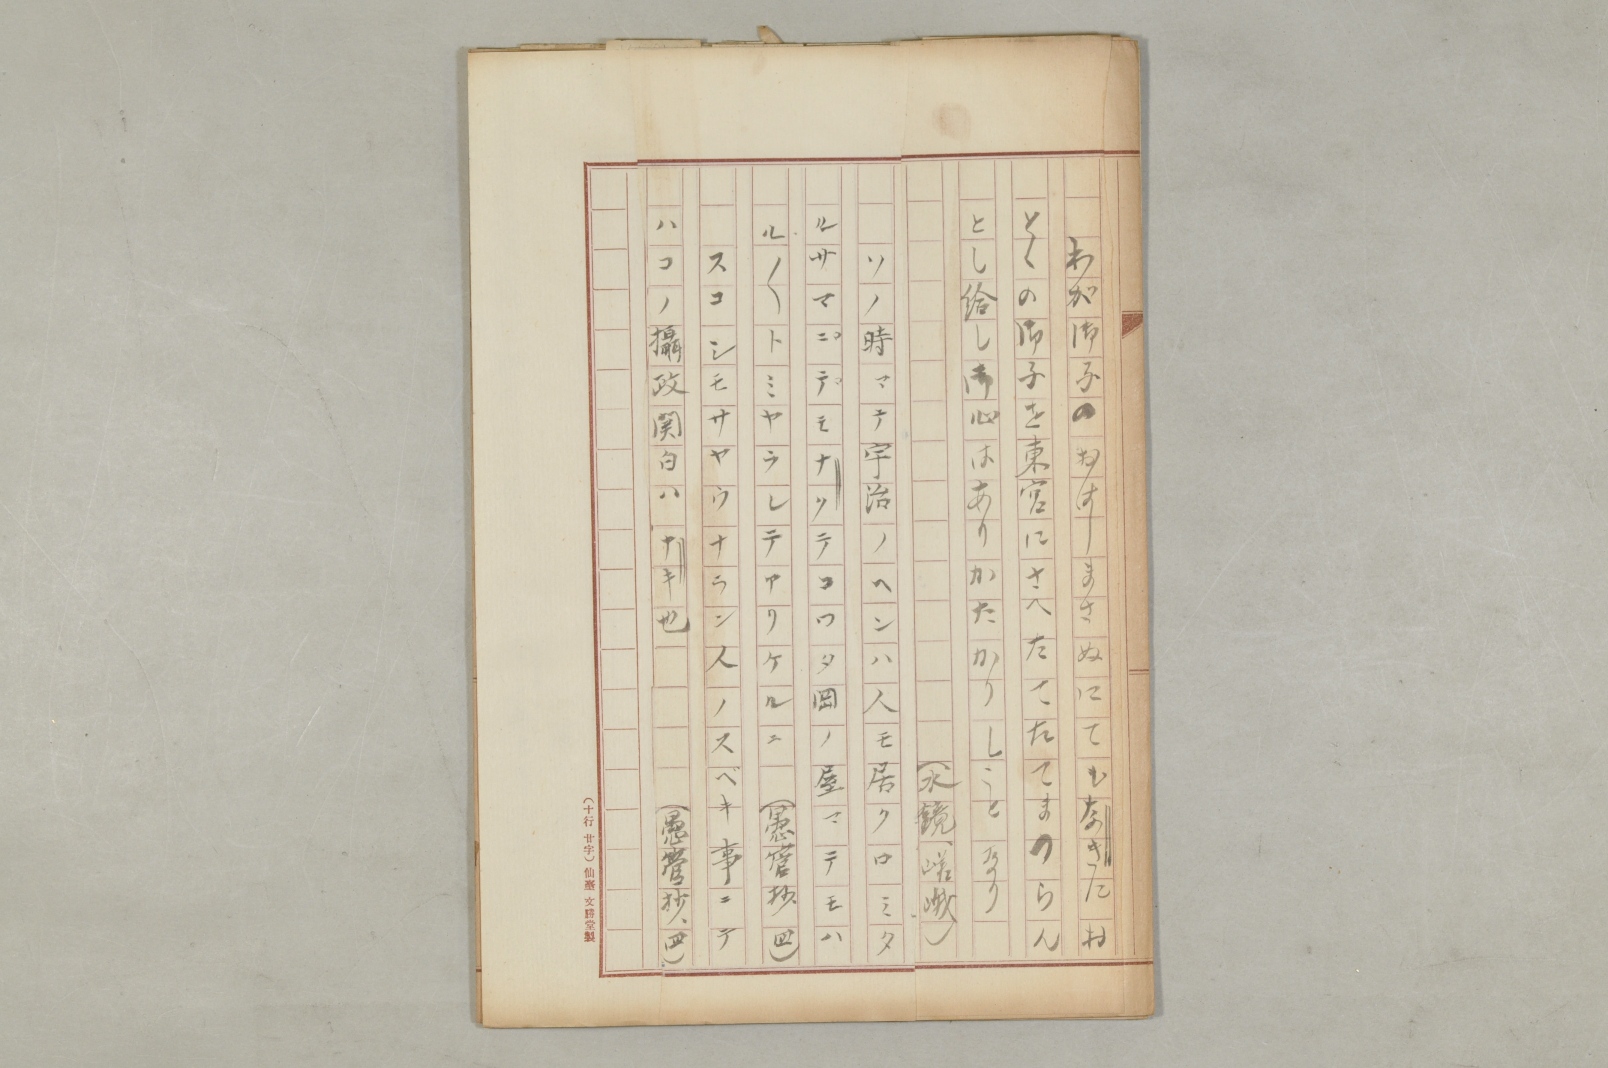 わが御子のおはしまさぬにてもなきにお
とゝの御子を東宮にさへたてたてまつらん
とし給し御心はありかたかりしことなり
（水鏡、嵯峨）
ソノ時マテ宇治ノヘンハ人モ居クロミタ
ルサマニデモナクテコワタ岡ノ屋マテモハ
ル〱トミヤラレテアリケルニ（愚管抄、四）
スコシモサヤウナラン人ノスベキ事ニテ
ハコノ攝政関白ハナキ也（愚管抄、四）
（十行 廿字）仙臺 文勝堂製